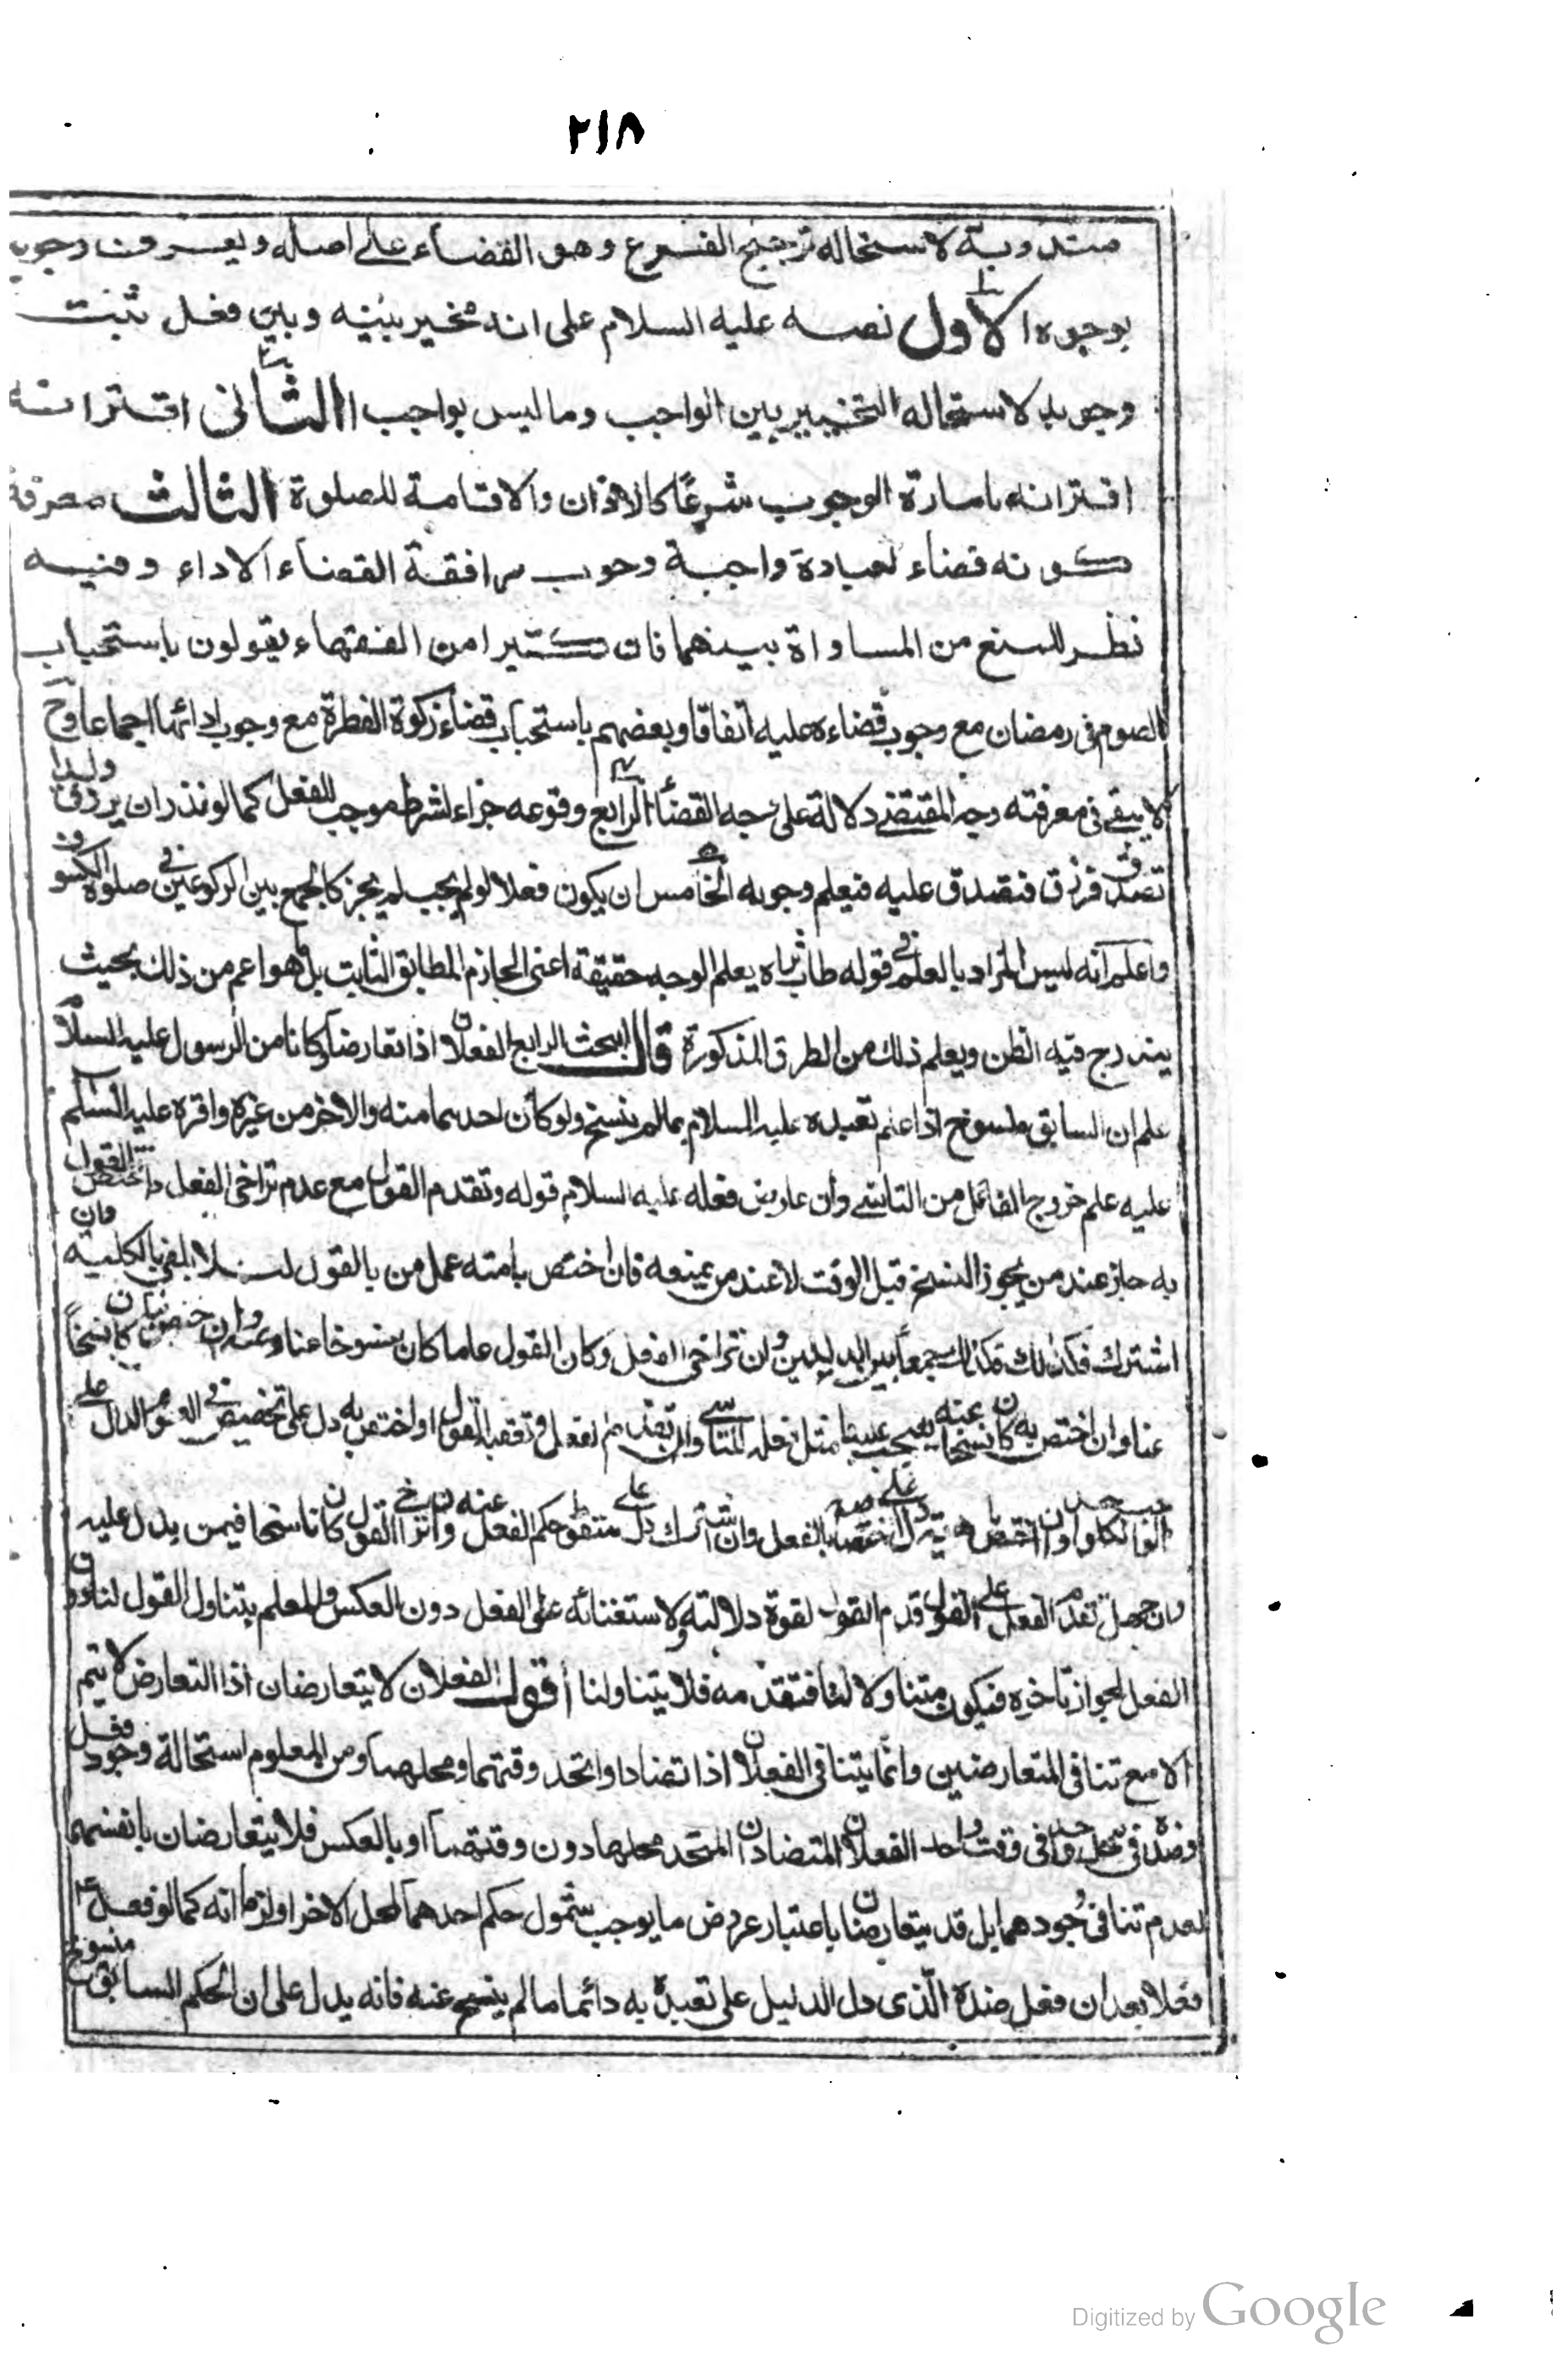 ٢١٨
مندوبة لاستحالة ترجيح الفرع وهو القضاء على اصله ويعرف وجوبه
بوجوه الاول نصه عليه السلام على انه مخير بينه وبين فعل ثبت
وجوبه لاستحالة التخيير بين الواجب وما ليس بواجب الثانى اقترانه
اقترانه بامارة الوجوب شرعًا كالاذان والاقامة للصلوة الثالث معرفة
كونه قضاء لعبادة واجبة وجوب مرافقة القضاء الاداء وفيه
نظر للمنع من المساواة بينهما فان كثيرا من الفقهاء يقولون باستحباب
الصوم فى رمضان مع وجوب قضاءه عليه اتفاقا وبعضهم باستحباب قضاء زكوة الفطرة مع وجوب ادائها اجماعا وح
لا يبقى فى معرفته وجه المقتضى دلالة على وجه القضاء الرابع وقوعه جزاء لشرط موجب للفعل كما لو نذر ان يرزق ولدا
تصدق فرزق فتصدق عليه فيعلم وجوبه الخامس ان يكون فعلا لو لم يجب لم يجز كالجمع بين الركوعين فى صلوة الكسوف
واعلم انه ليس المراد بالعلم فى قوله طاب ثراه يعلم الوجه حقيقة اعنى الجازم المطابق الثابت بل ما هو اعم من ذلك بحيث
يندرج فيه الظن ويعلم ذلك من الطرق المذكورة قال البحث الرابع الفعلان اذا تعارضا وكانا من الرسول عليه السلام
علم ان السابق منسوخ اذا علم تعبده عليه السلام بما لم ينسخ ولو كان احدهما منه والاخر من غيره واقره عليه السلم
عليه علم خروج الفاعل من التاسى وان عارض فعله عليه السلام قوله وتقدم القول مع عدم تراخى الفعل واختص القول
به جاز عند من يجوز النسخ قبل الوقت لا عند من يمنعه فان اختص بامته عمل من بالقول لئلا يلغى بالكلية وان
اشترك فكذلك جمعا بين الدليلين وان تراخى الفعل وكان القول عاما كان منسوخا عنا وعنه وان اختص بنا كان نسخًا
عنا وان اختص به كان نسخا عنه يجب علينا مثل فعله للتاسى وان تقدم الفعل وتعقبه القول او اختص به دل على تخصيص فى العموم الدال على
وان اختص بامته دل على اختصاصه بالفعل وان اشترك دل على سقوط حكم الفعل عنه وان تراخى القول كان ناسخا فيمن يدل عليه
وان جهل تقدم الفعل على القول قدم القول لقوة دلالته ولاستغنائه على الفعل دون العكس وللعلم بتناول القول لنا دون
الفعل لجواز تاخره فيكون متناولا لنا فتقدمه فلا يتناولنا اقول الفعلان لا يتعارضان اذا التعارض لا يتم
الا مع تنافى المتعارضين وانما يتنافى الفعلان اذا تضادا واتحد وقتهما ومحلهما ومن المعلوم استحالة وجود فعل
وضده فى محل واحد فى وقت واحد الفعلان المتضادان المتحد محلهما دون وقتهما او بالعكس فلا يتعارضان بانفسهما
لعدم تنافى وجودهما بل قد يتعارضان باعتبار عروض ما يوجب شمول حكم احدهما لمحل الاخر او لزمانه كما لو فعل ع
فعلا بعد ان فعل ضده الذى دل الدليل على تعبده به دائما ما لم ينسخ عنه فانه يدل على ان الحكم السابق منسوخ
Digitized by Google